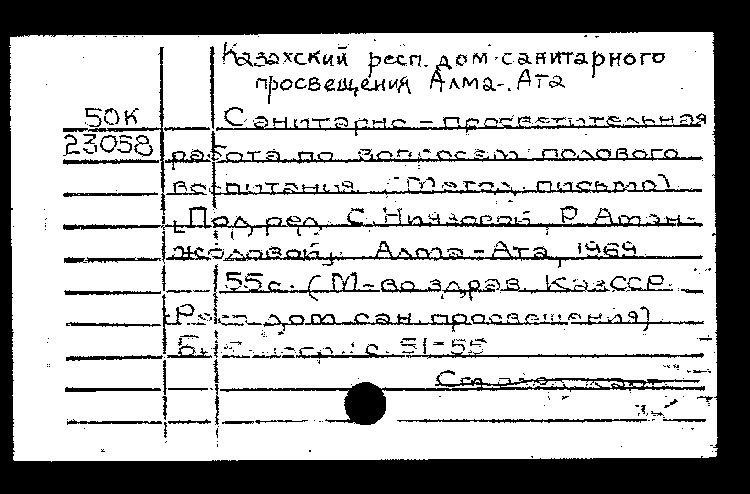 Казахский респ. дом санитарного
просвещения Алма-Ата
50К
Санитарно-просветительная
23058
работа по вопросам полового
воспитания. (Метод. письмо)
[Под ред. С. Ниязовой, Р. Аман-
жоловой]. Алма-Ата, 1969.
55 с. (М-во здрав. КазССР.
Респ. дом сан. просвещения)
с. 51-55